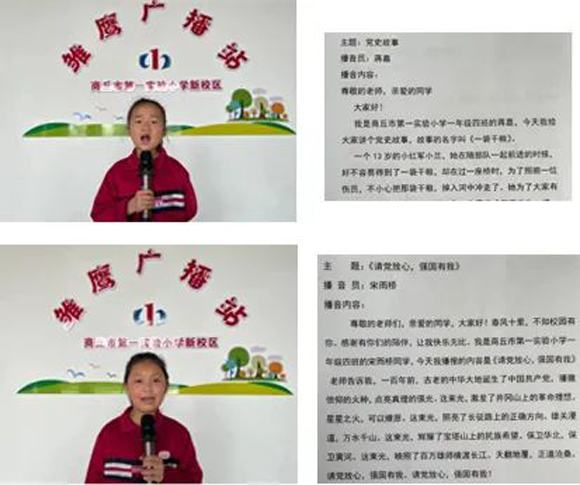 雏鹰广播站
商丘市第一实验小学新校区
主题：党史故事
播音员：蒋嘉
播音内容：
尊敬的老师，亲爱的同学
大家好！
我是商丘市第一实验小学一年级四班的蒋嘉，今天我给
大家讲个党史故事，故事的名字叫《一袋干粮》。
一个 13 岁的小红军小兰，她在随部队一起前进的时候，
好不容易得到了一袋干粮，却在过一座桥时，为了照顾一位
伤员，不小心把那袋干粮，掉入河中冲走了，她为了大家有
雏鹰广播站
商丘市第一实验小学新校区
主 题：《请党放心，强国有我》
播 音 员：宋雨桥
播音内容：
尊敬的老师们，亲爱的同学，大家好！春风十里，不如校园有
你，感谢有你们的陪伴，让我快乐无比，我是商丘市第一实验小学一
年级四班的宋雨桥同学，今天我播报的内容是《请党放心，强国有我》
老师告诉我，一百年前，古老的中华大地诞生了中国共产党，播撒
信仰的火种，点亮真理的强光，这束光，激发了井冈山上的革命理想，
星星之火，可以燎原，这束光，照亮了长征路上的正确方向，雄关漫
道，万水千山，这束光，辉耀了宝塔山上的民族希望，保卫华北，保
卫黄河，这束光，映照了百万雄师横渡长江，天翻地覆，正道沧桑，
请党放心，强国有我，请党放心，强国有我！